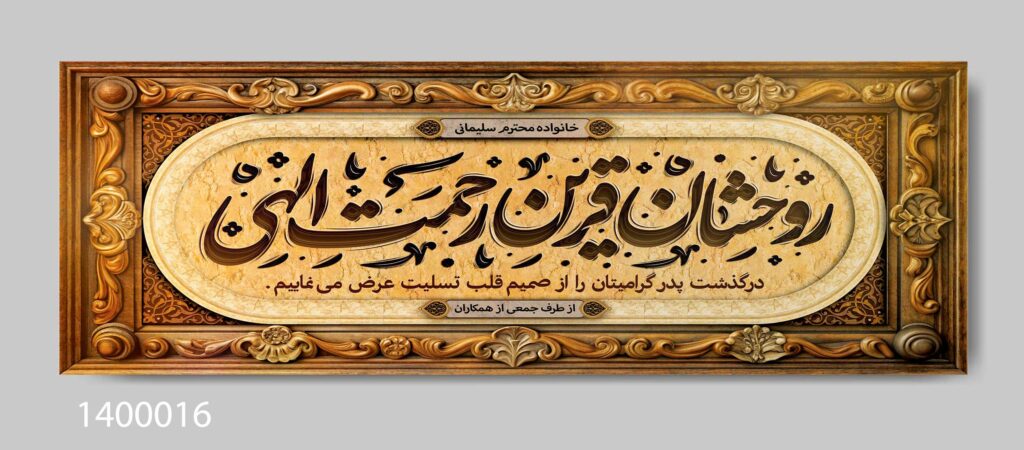 خانواده محترم سلیمانی
روحشان قرین رحمت الهی
درگذشت پدر گرامیتان را از صمیم قلب تسلیت عرض می نماییم.
از طرف جمعی از همکاران
1400016